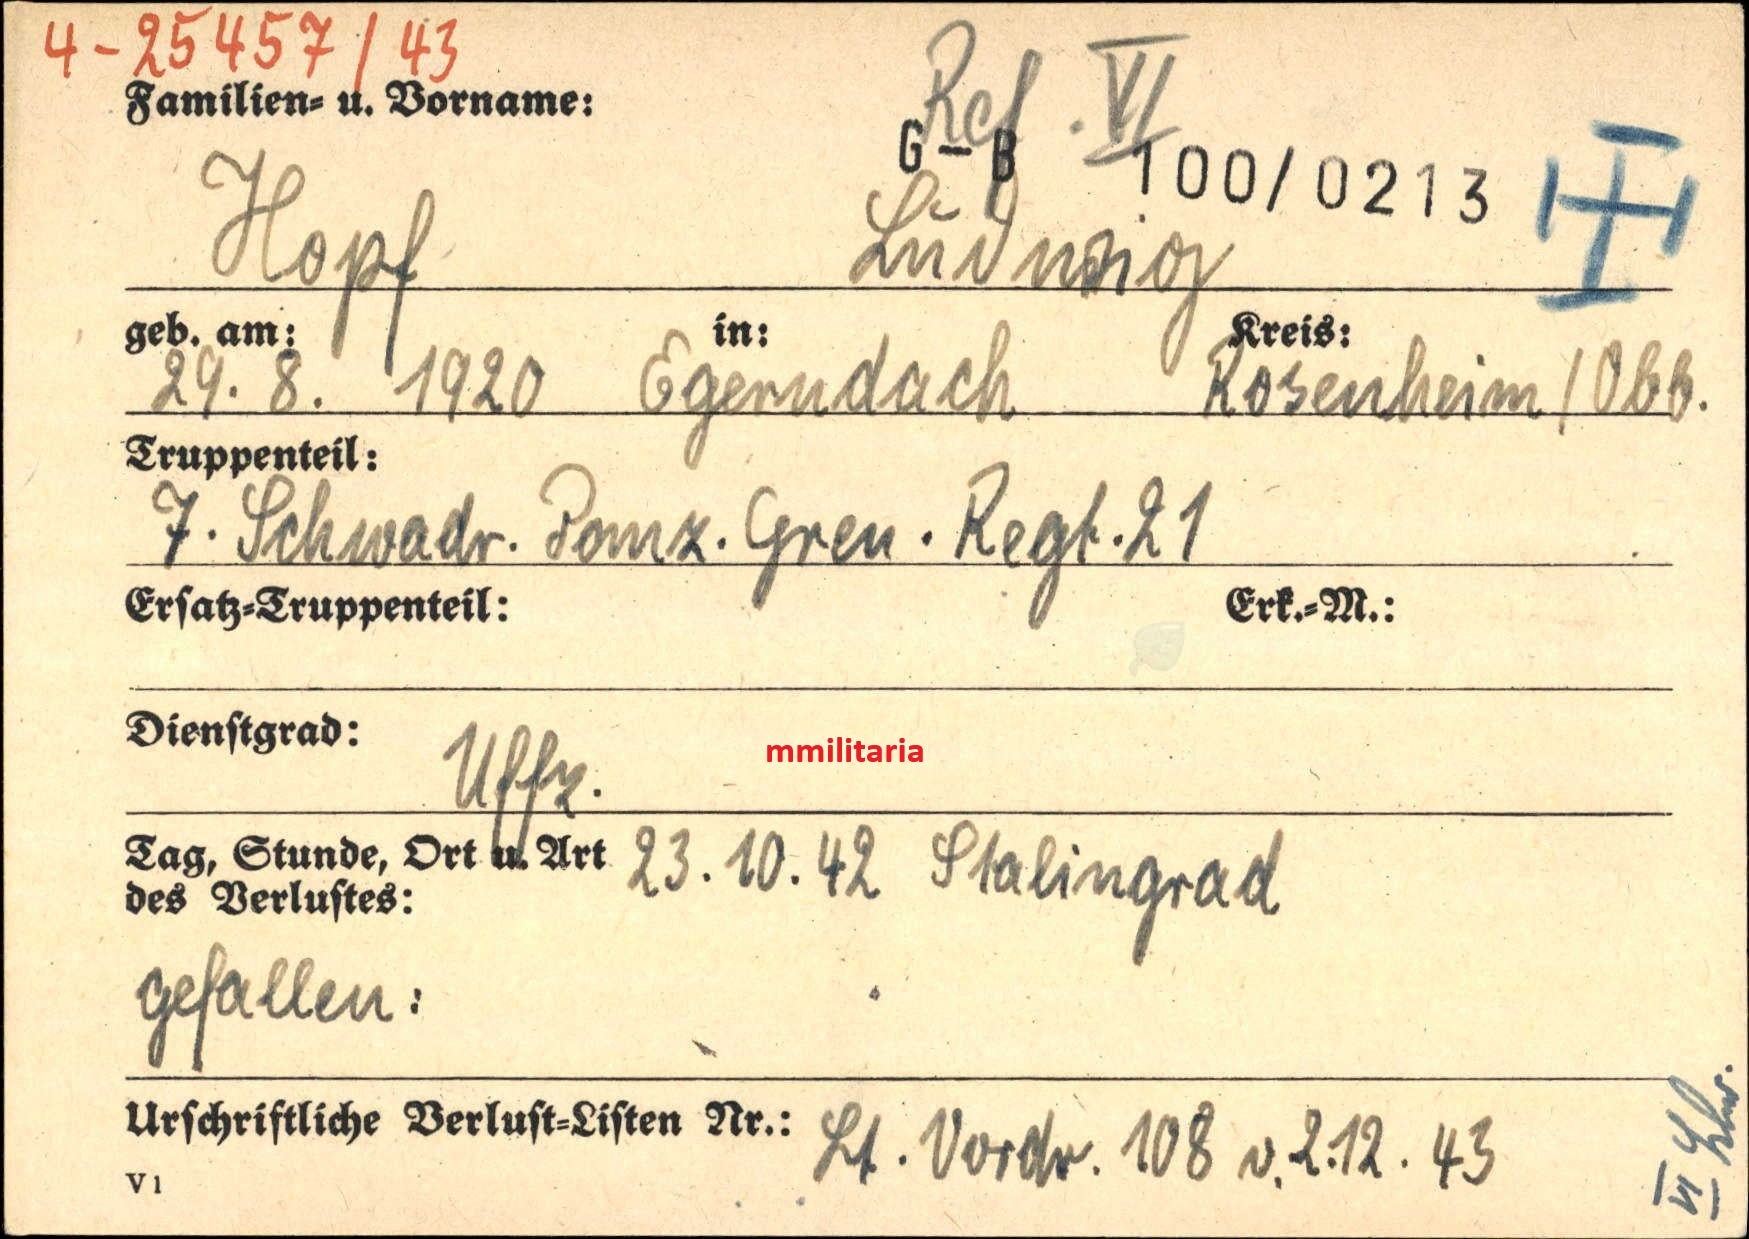 4-25457/43
Ref. VI
Familien- u. Vorname:
G-B 100/0213
Hopf Ludwig
geb. am: in: Kreis:
29. 8. 1920 Egerndach Rosenheim / Obb.
Truppenteil:
7. Schwadr. Panz. Gren. Regt. 21
Ersatz-Truppenteil: Erk.-M.:
Dienstgrad:
Uffz.
mmilitaria
Tag, Stunde, Ort u. Art 23.10.42 Stalingrad
des Verlustes:
gefallen:
Urschriftliche Verlust-Listen Nr.: Lt. Vordr. 108 v. 2.12.43
V 1
VI